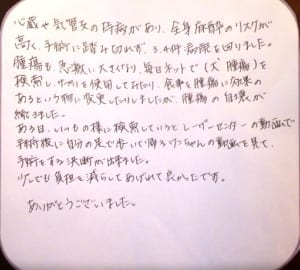 心臓や気管支の持病があり、全身麻酔のリスクが
高く、手術に踏み切れず、3、4件病院を回りました。
腫瘍も、急激に大きくなり、毎日ネットで(犬 腫瘍)を
検索し、サプリを使用してみたり、食事を腫瘍に効果の
あるという物に変更したりしましたが、腫瘍の自壊が
始まりました。
ある日、いつもの様に検索していると、レーザーセンターの動画で
手術後に自分の足で歩いて帰るけたちゃんの動画を見て、
手術をする決断が出来ました。
少しでも負担を減らしてあげれて良かったです。
ありがとうございました。